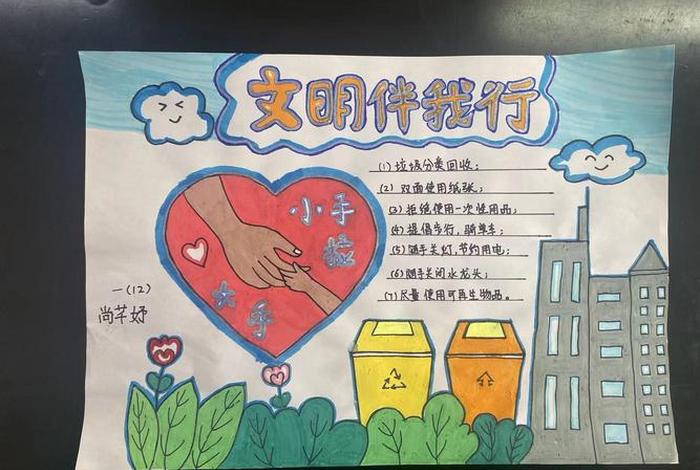 文明伴我行
(1) 垃圾分类回收；
(2) 双面使用纸张；
(3) 拒绝使用一次性用品；
(4) 提倡步行，骑单车；
(5) 随手关灯，节约用电；
(6) 随手关闭水龙头；
(7) 尽量使用可再生物品。
小手
拉
大手
一(12)
尚芊妤